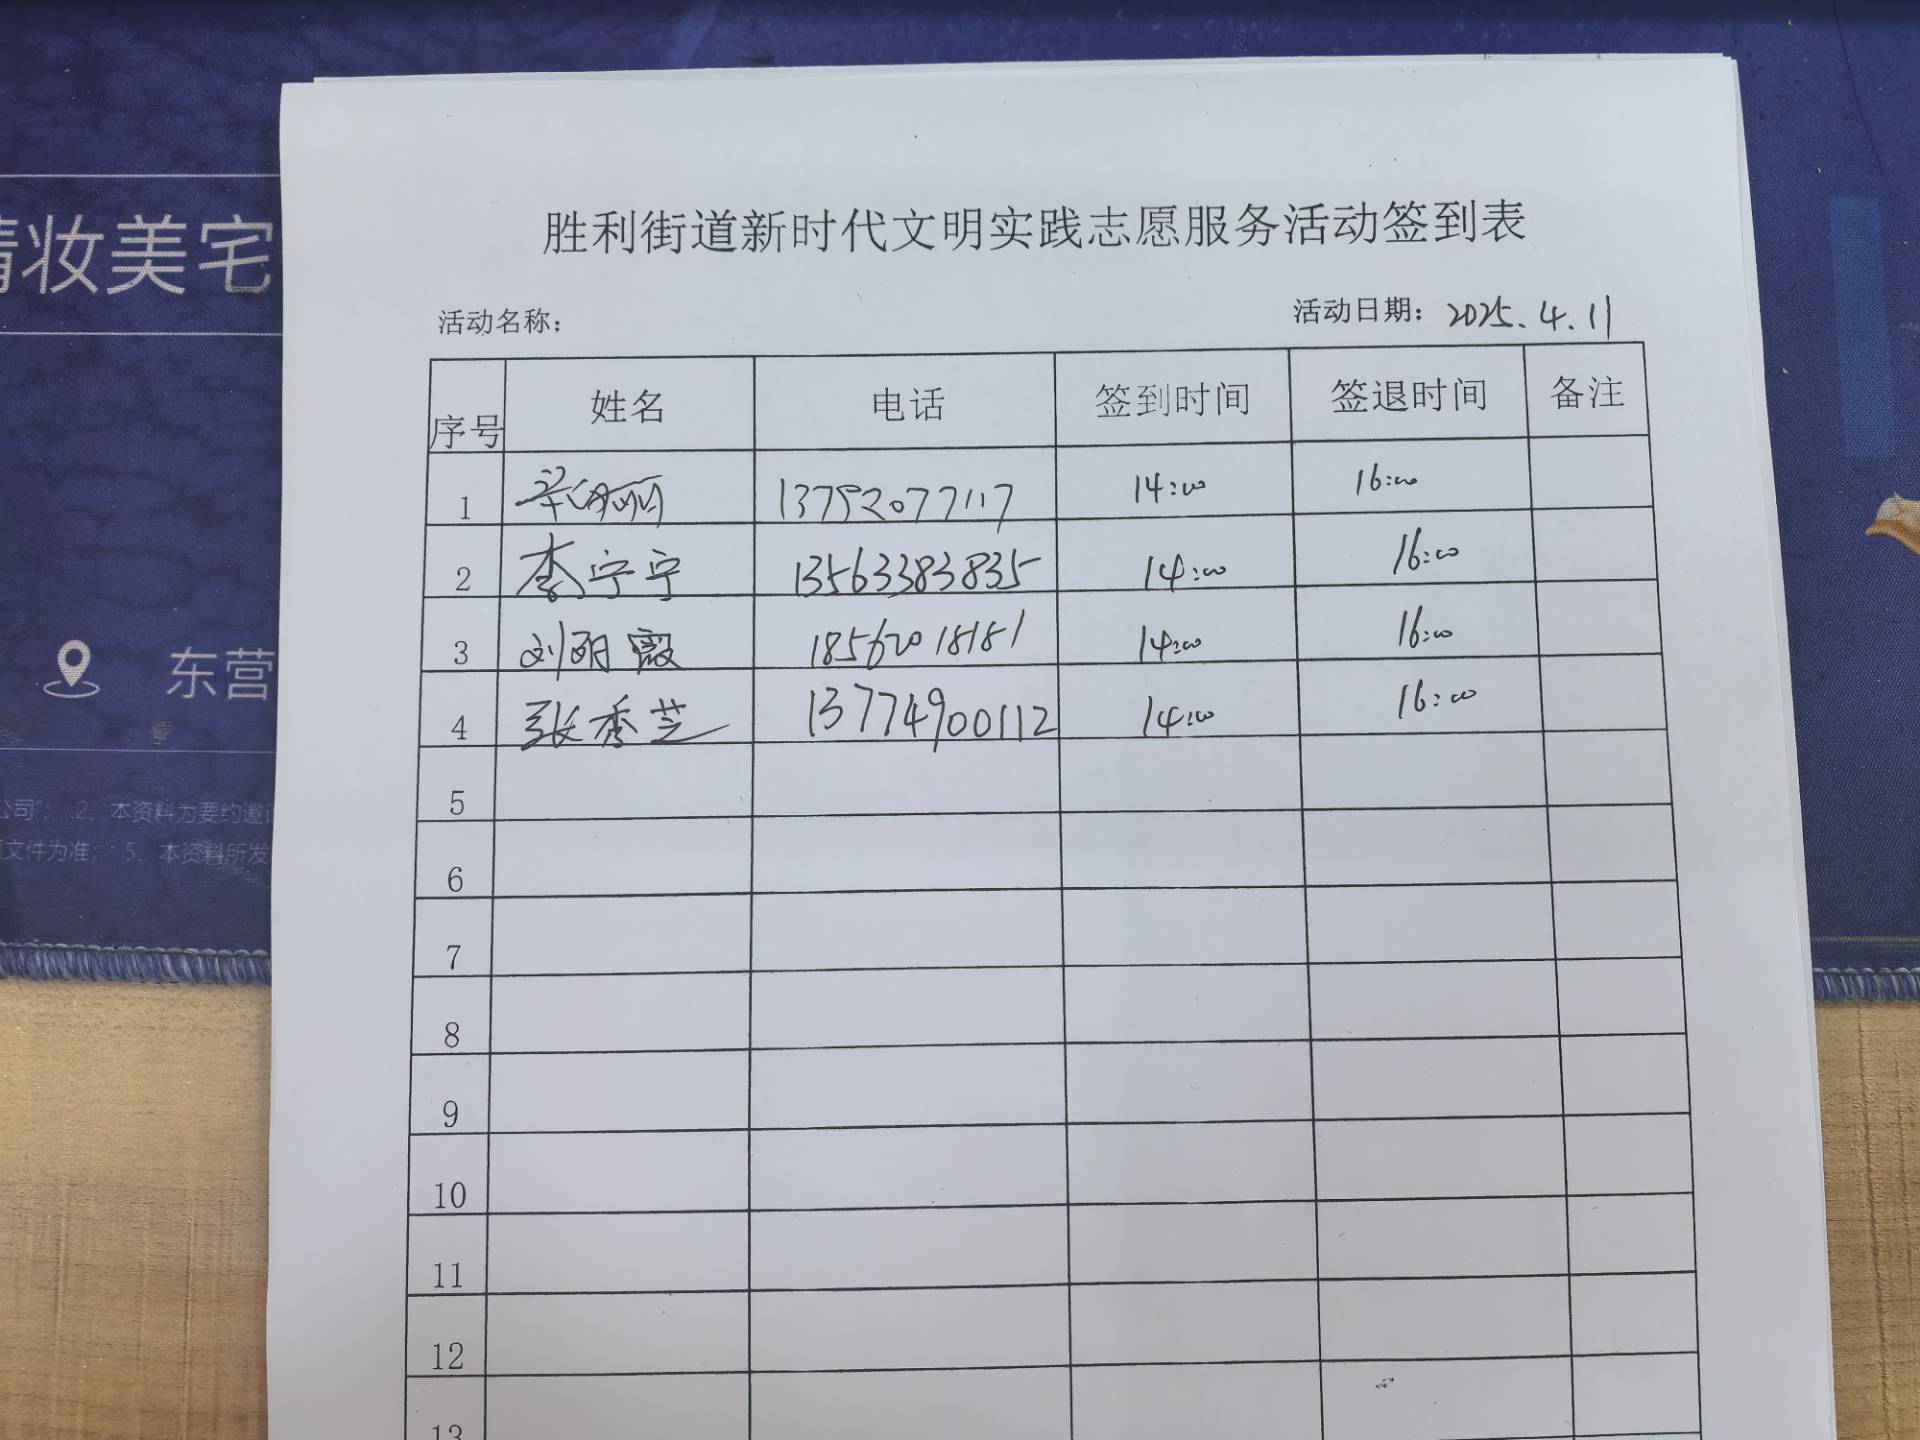 胜利街道新时代文明实践志愿服务活动签到表
活动名称: 活动日期: 2025.4.11
序号 姓名 电话 签到时间 签退时间 备注
1 13792077117 14:00 16:00
2 李宁宁 13563383835 14:00 16:00
3 刘丽霞 18562018181 14:00 16:00
4 张秀芝 13774900112 14:00 16:00
5
6
7
8
9
10
11
12
13
精妆美宅
东营
公司; 2、本资料为要约邀
文件为准; 5、本资料所发